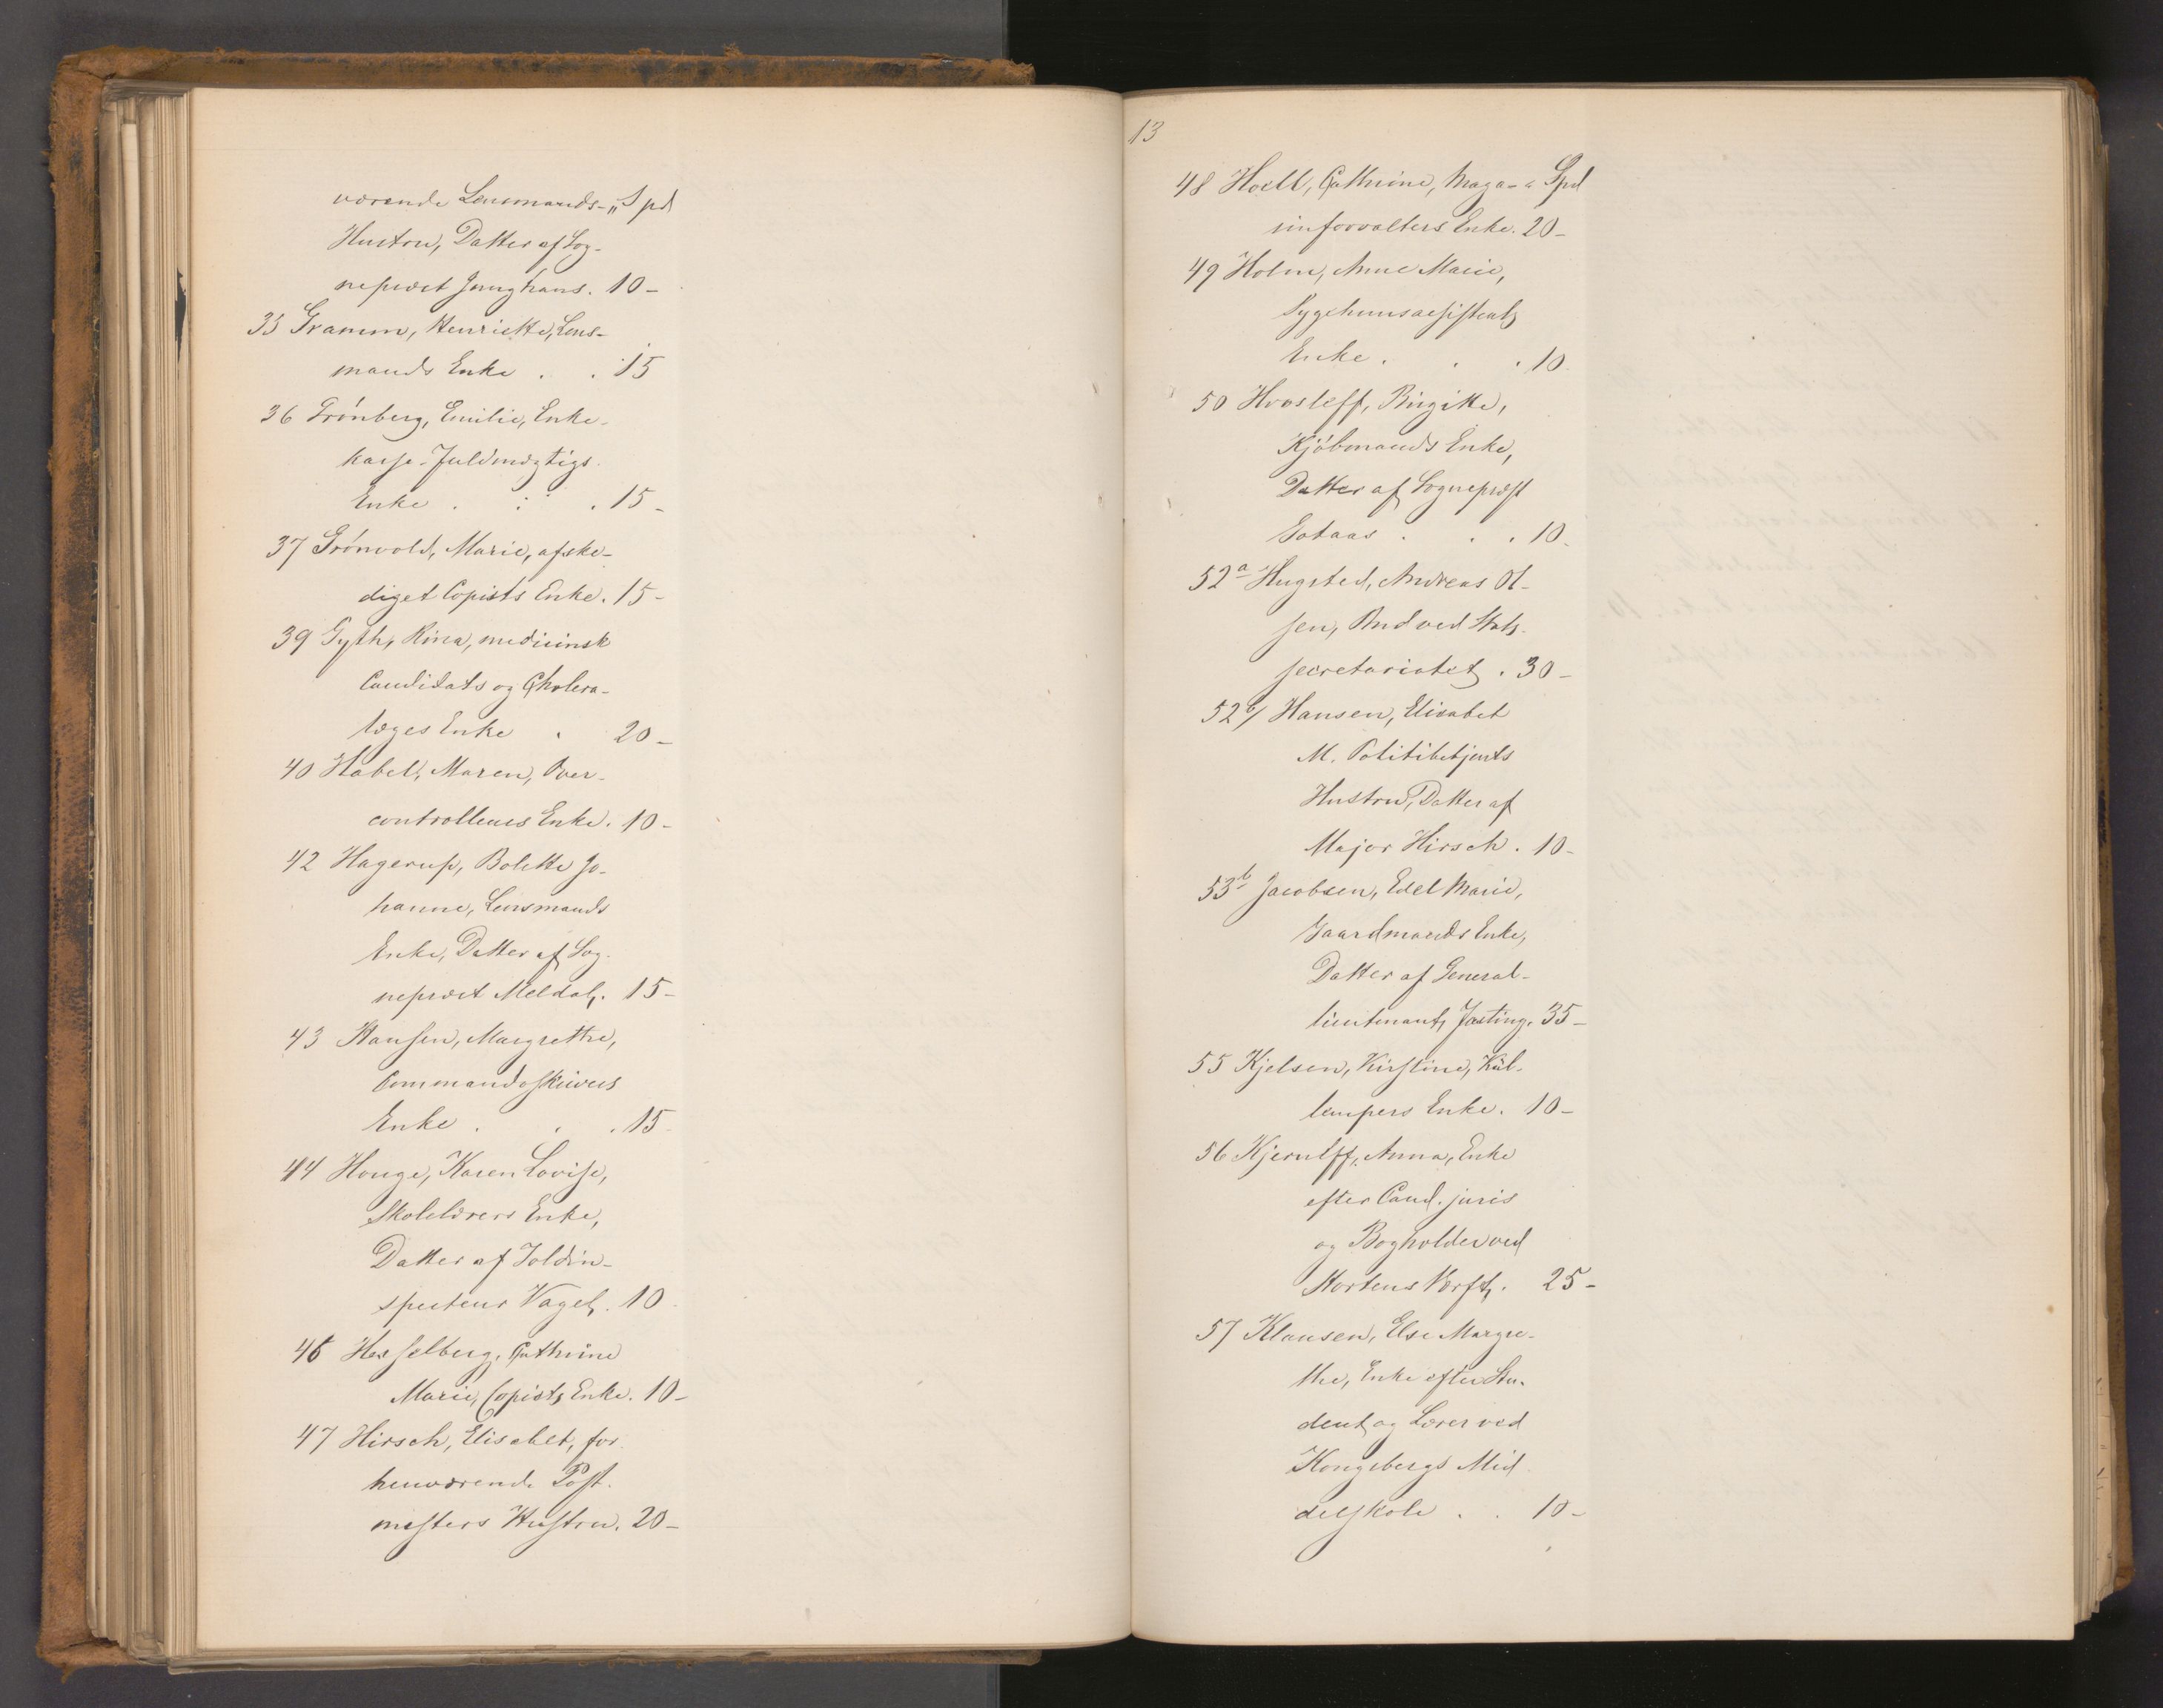 værende Lensmands- „ Spd
Hustru, Datter af Sog-
nepræst Junghans. 10-
35 Gramm, Henriette, Lens-
mands Enke . . 15
36 Grönberg, Emilie, Enke-
kasse-Fuldmægtigs
Enke . . . 15-
37 Grönvold, Marie, afske-
diget Copists Enke. 15-
39 Gyth, Rina, medicinsk
Candidats og Cholera-
læges Enke . 20-
40 Habel, Maren, Over-
controlleurs Enke. 10-
42 Hagerup, Bolette Jo-
hanne, Lensmands
Enke, Datter af Sog-
nepræst Meldal. 15-
43 Hansen, Margrethe,
Commandoskrivers
Enke . . . 15-
44 Houge, Karen Lovise,
Skolelærers Enke,
Datter af Toldin-
specteur Vagel. 10
46 Hesselberg, Cathrine
Marie, Copists Enke. 10-
47 Hirsch, Elisabet, for-
henværende Post-
mesters Hustru. 20-
13
48 Hoell, Cathrine, Maga- „ Spd
sinforvalters Enke. 20-
49 Holm, Anne Marie,
Sygehuusassistents
Enke . . . 10
50 Hvosleff, Birgitte,
Kjöbmands Enke,
Datter af Sognepræst
Gotaas . . . 10-
52a Hugsted, Andreas Ol-
sen, Bud ved Stats-
secretariatet . 30-
52b/ Hansen, Elisabet
M. Politibetjents
Hustru, Datter af
Major Hirsch. 10-
53b Jacobsen, Edel Marie,
Gaardmands Enke,
Datter af General-
lieutenant Jasting. 35-
55 Kjelsen, Kirstine, Kül-
lempers Enke. 10-
56 Kjerulff, Anna, Enke
efter Cand. juris
og Bogholder ved
Hortens Værft. 25-
57 Klausen, Else Margre-
the, Enke efter Stu-
dent og Lærer ved
Kongsbergs Mid-
delskole . . 10-